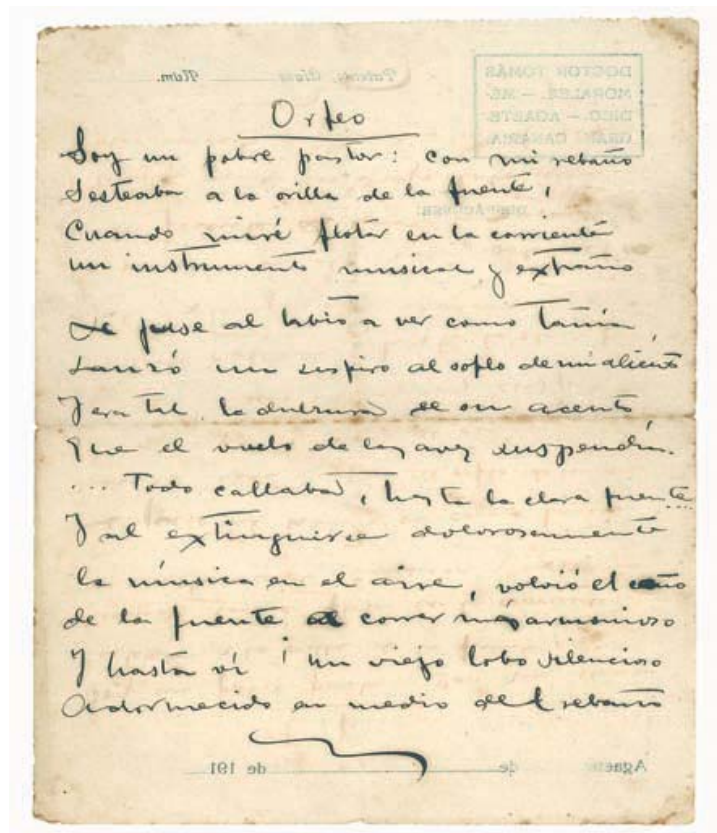 Patente, Clase Núm.
DOCTOR TOMÁS
MORALES. — MÉ-
DICO. — AGAETE
GRAN CANARIA
Orfeo
Soy un pobre pastor: con mi rebaño
Sesteaba a la orilla de la fuente,
Cuando miré flotar en la corriente
un instrumento musical y extraño
Le puse al labio a ver como tañía
Lanzó un suspiro al soplo de mi aliento
Y era tal la dulzura de su acento
Que el vuelo de las aves suspendía.
... Todo callaba, hasta la clara fuente...
Y al extinguirse dolorosamente
la música en el aire, volvió el caño
de la fuente a correr más armonioso
Y hasta vi ¡un viejo lobo silencioso
Adormecido en medio del rebaño
Agaete de de 191